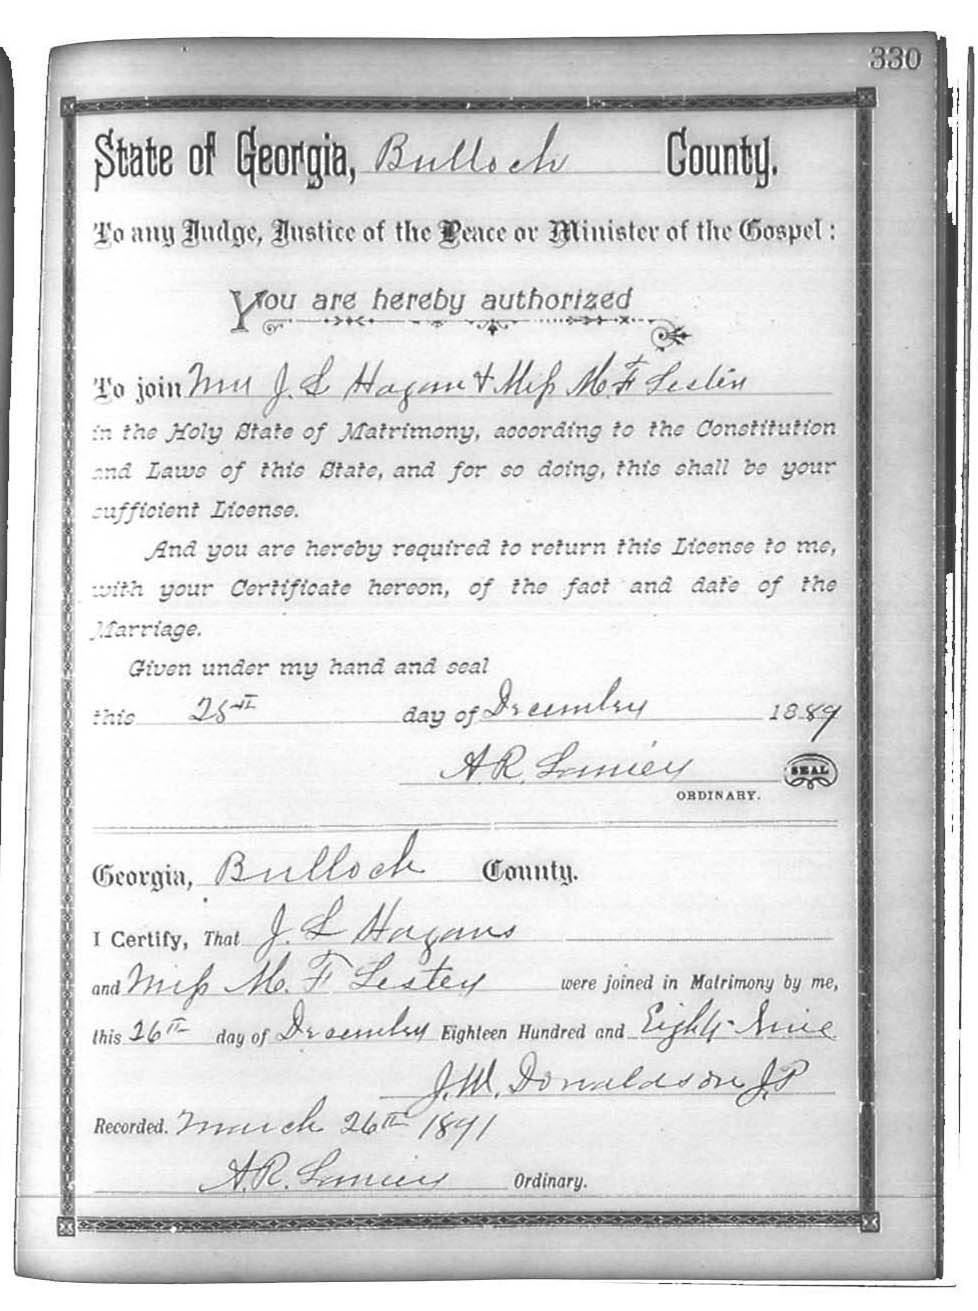 330
State of Georgia, Bulloch County.
To any Judge, Justice of the Peace or Minister of the Gospel:
You are hereby authorized
To join J. L Hagan & Miss M. F
in the Holy State of Matrimony, according to the Constitution
and Laws of this State, and for so doing, this shall be your
sufficient License.
And you are hereby required to return this License to me,
with your Certificate hereon, of the fact and date of the
Marriage.
Given under my hand and seal
this day of December 1889
A R. Lanier SEAL
ORDINARY.
Georgia, Bulloch County.
I Certify, That J. L Hagans
and Miss M. F Lester were joined in Matrimony by me,
this 26th day of December Eighteen Hundred and Eighty-Nine
J. W. Donaldson J.P
Recorded. March 26th 1891
A. R. Lanier Ordinary.